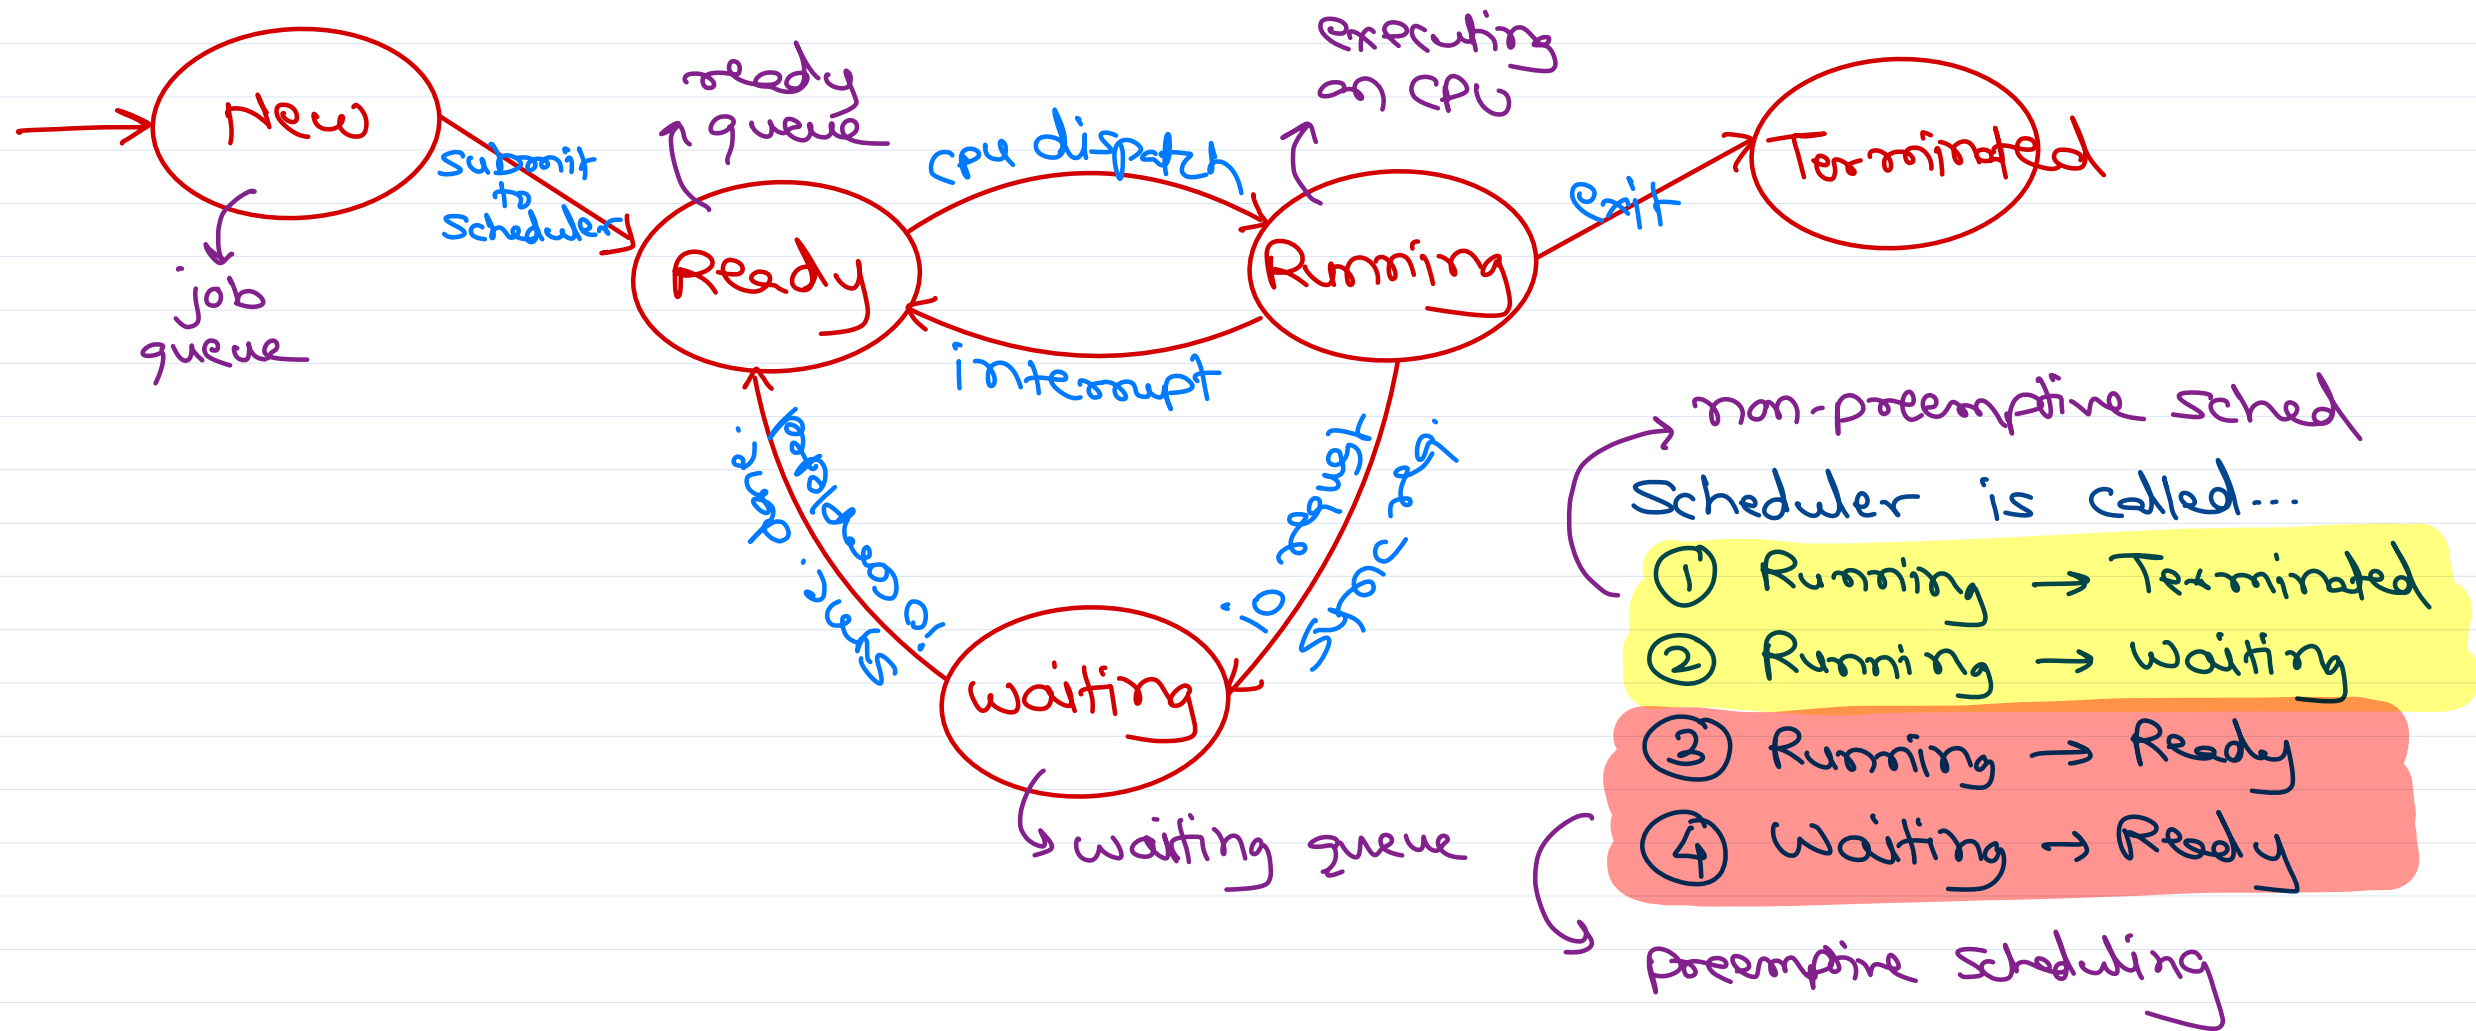 New
submit
to
scheduler
job
queue
ready
queue
Ready
cpu dispatch
interrupt
executing
on CPU
Running
exit
Terminated
io request
sync req.
io completed
sync. done
waiting
waiting queue
non-preemptive sched
Scheduler is called...
① Running → Terminated
② Running → Waiting
③ Running → Ready
④ Waiting → Ready
preemptive scheduling